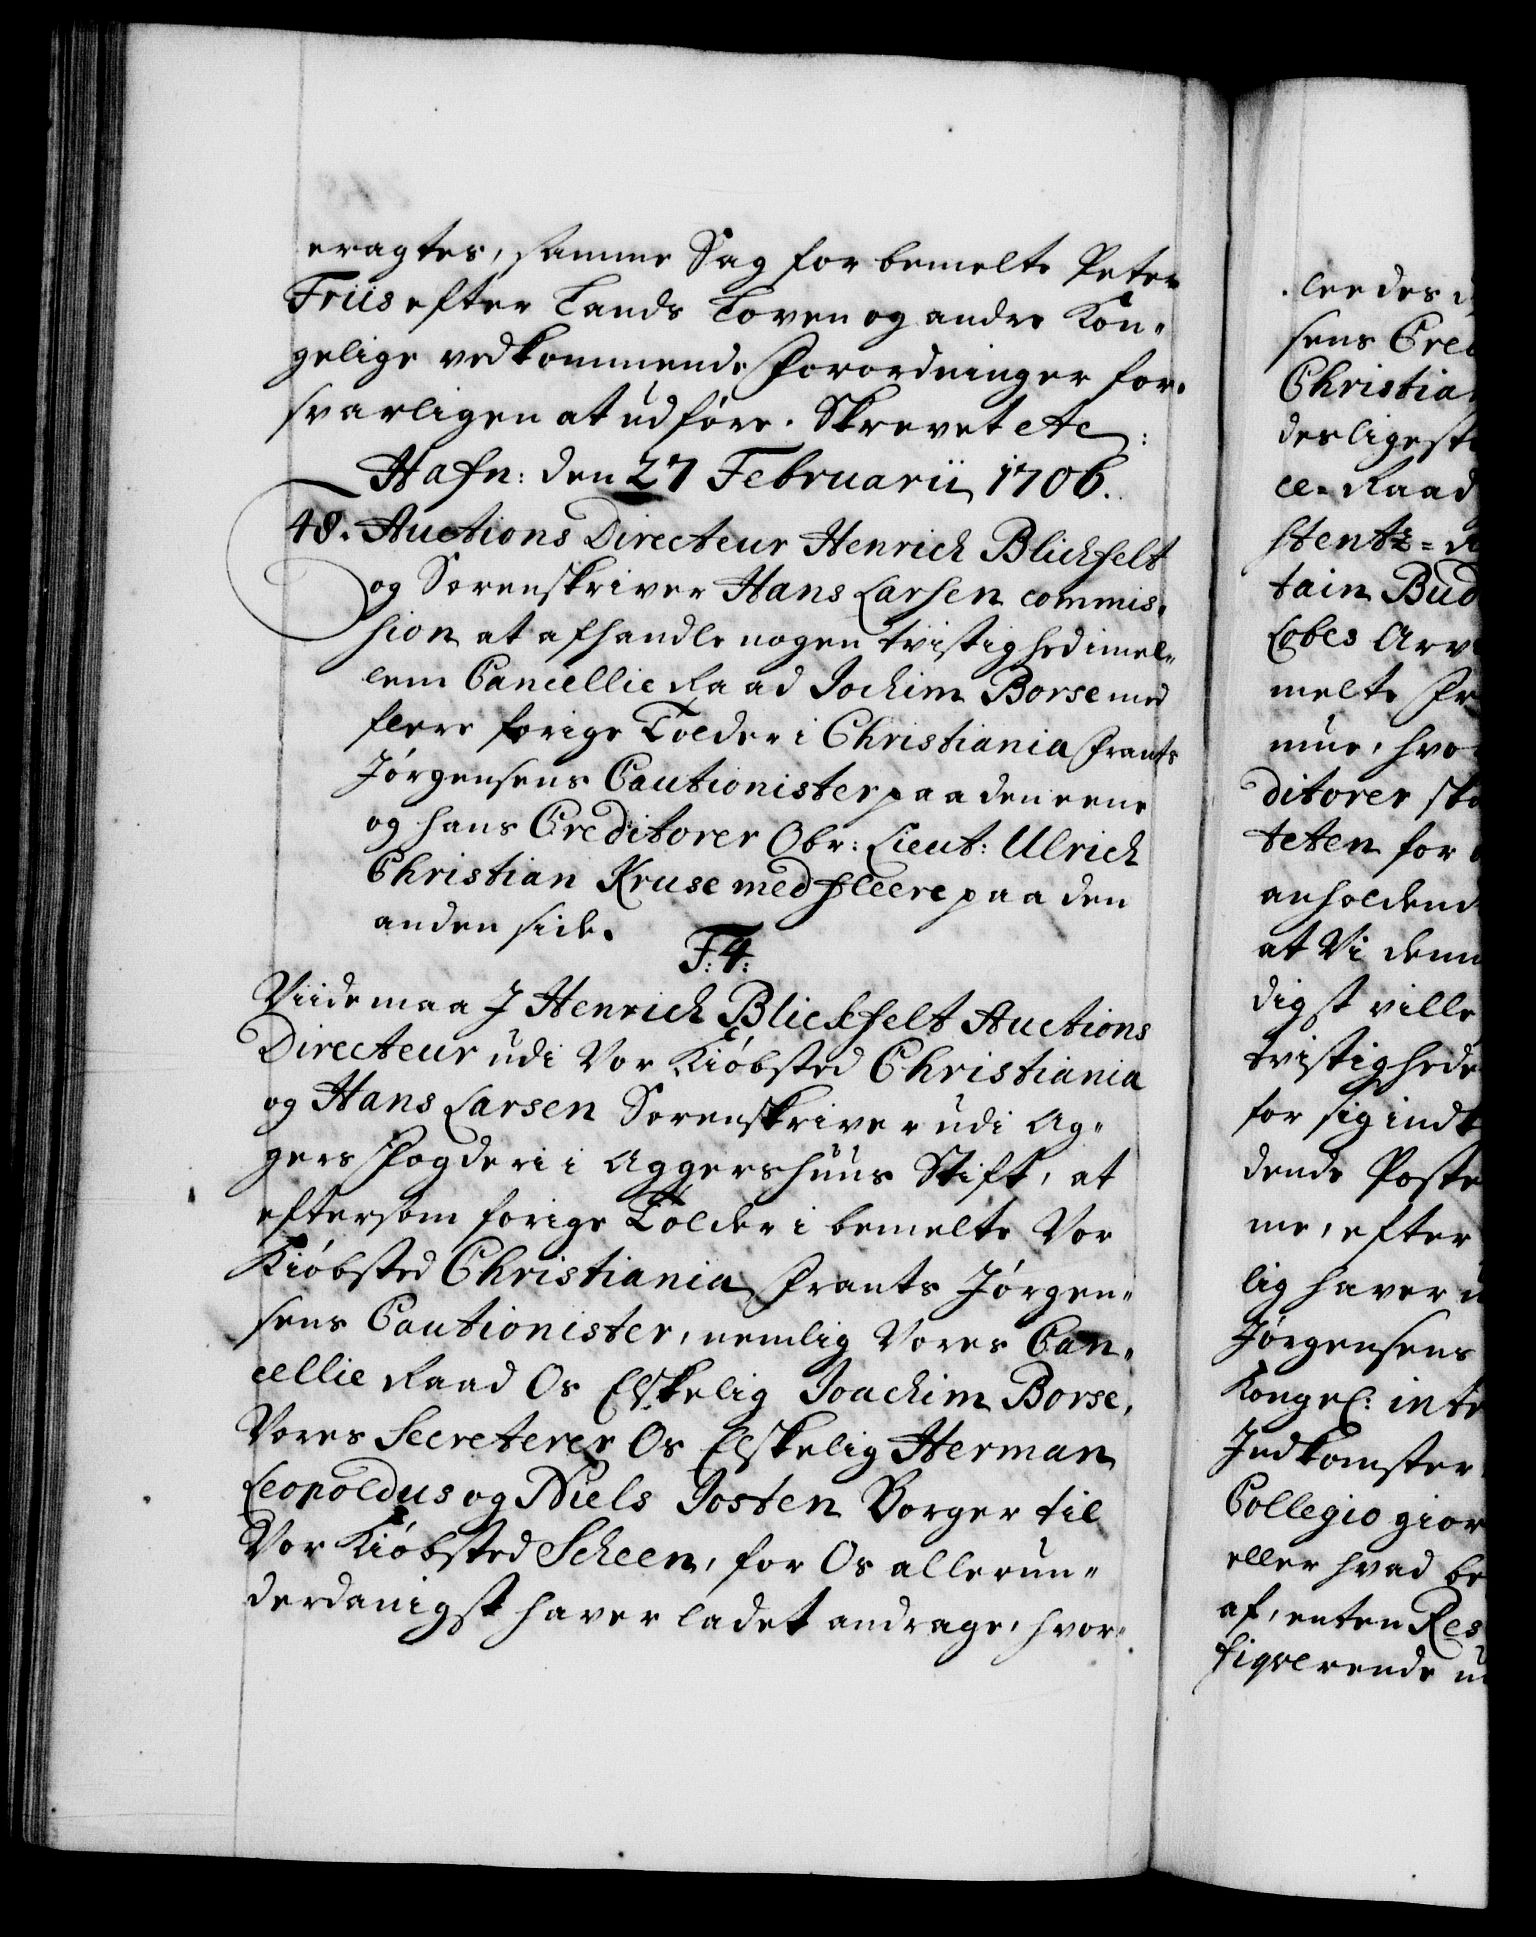 eragtes, samme Sag for bemelte Peter
Friis efter Lands Loven og andre Kon-
gelige vedkommende Forordninger for-
svarligen at udføre. Skrevet etc:
Hafn: den 27 Februarii 1706.
48. Auctions Directeur Henrich Blichfelt
og Sorenskriver Hans Larsen commis-
sion at afhandle nogen tvistighed imel-
lem Cancellie Raad Jochim Borse med
flere forige Tolder i Christiania Frants
Jørgensens Cautionister paa den eene
og hans Creditorer Obr: Lieut: Ulrich
Christian Kruse med fleere paa den
anden side.
F: 4:
Viide maa I Henrich Blickfelt Auctions
Directeur udi Vor Kiøbsted Christiania
og Hans Larsen Sorenskriver udi Ag-
gers Fogderi i Aggershuus Stift, at
eftersom forige Tolder i bemelte Vor
Kiøbsted Christiania Frants Jørgen-
sens Cautionister, nemlig Vores Can-
cellie Raad Os Elskelig Joachim Borse,
Vores Secreterer Os Elskelig Herman
Leopoldus og Niels Josten Borger til
Vor Kiøbsted Scheen, for Os allerun-
derdanigst haver ladet andrage, hvor-
leedes
sens Cred
Christian
desligeste
ce-Raad
stentz-
tain Bud
Lobes Arv
melte Fr
mue, hvo
ditorer ska
teten for
anholdend
at Vi denn
digst ville
tvistighede
for sig indk
dende Poste
me, efter
lig haver
Jørgensens
Kongel: inte
Indkomster
Collegio gior
eller hvad be
af, enten Res
siqverende u